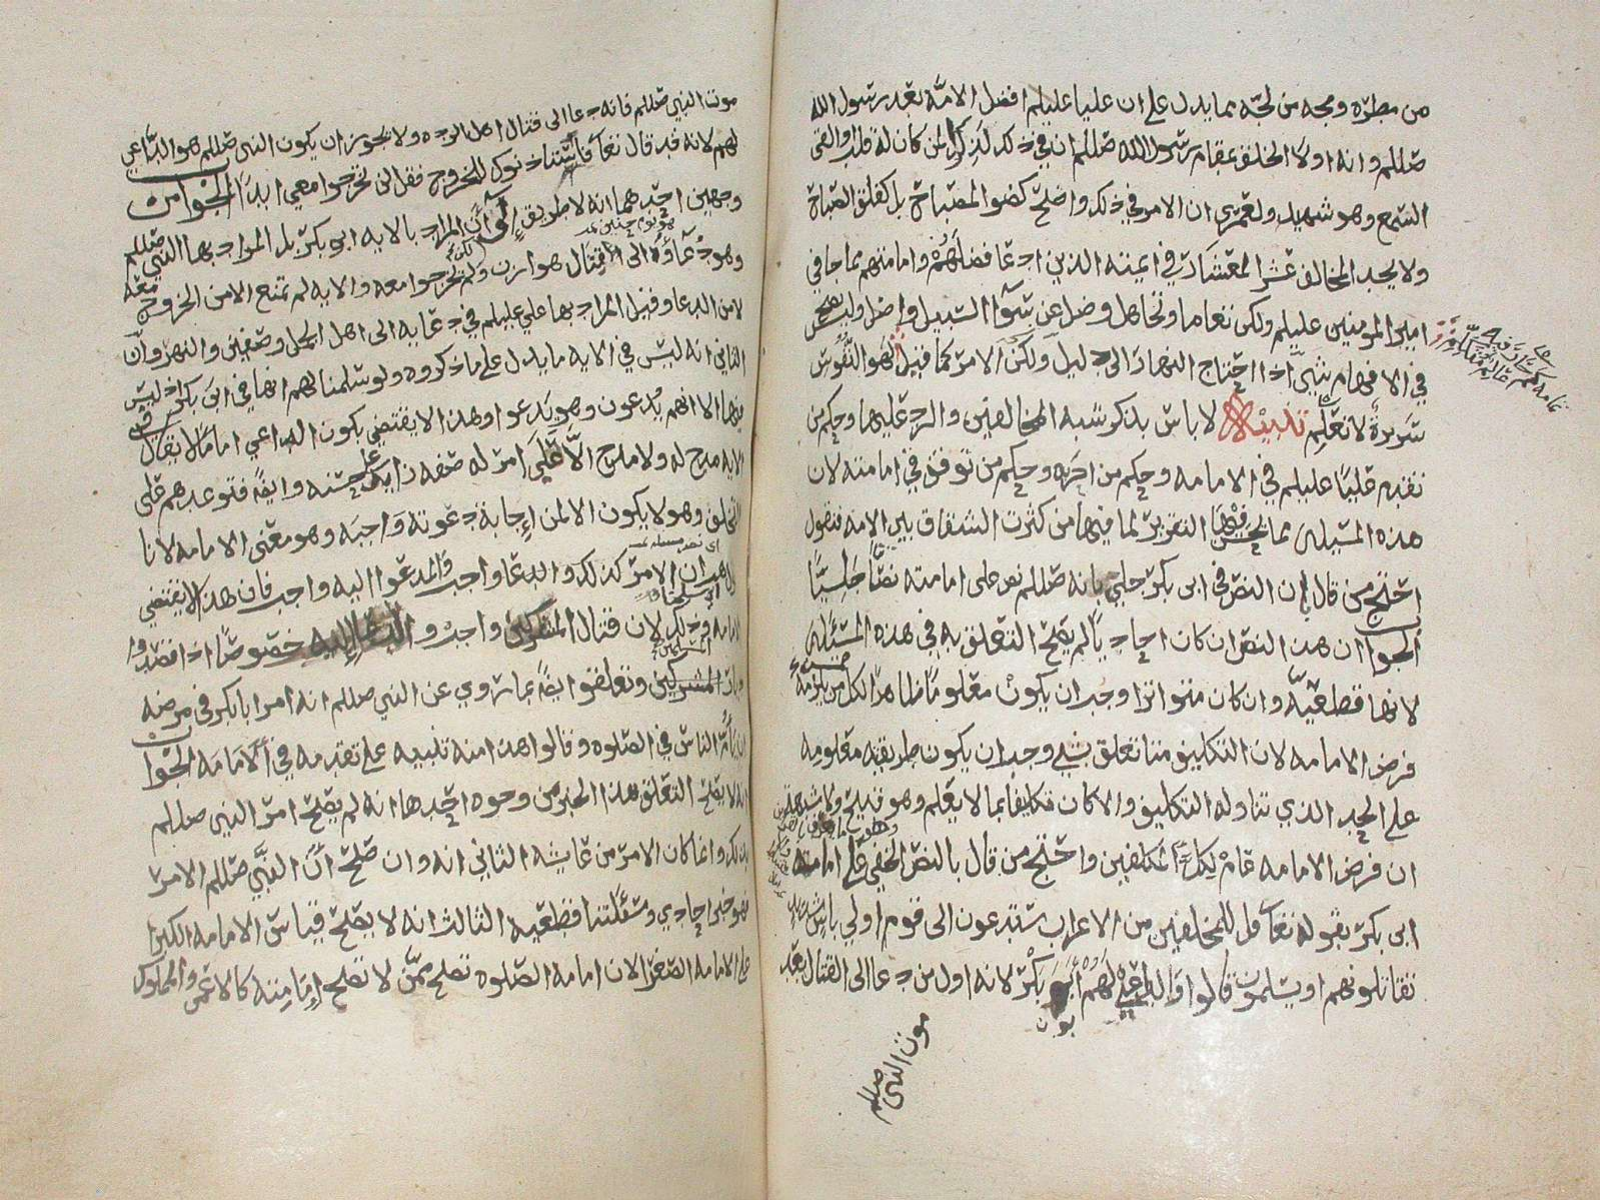 من مطره ومجه من لجه مما يدل على ان عليا عليلم افضل الامه بعد رسول الله
صللم وانه اولا الخلق بمقام رسول الله صللم ان في ذلك لذكرا لمن كان له قلب او القى
السمع وهو شهيد ولعمري ان الامر في ذلك واضح كضوا المصباح بل كفلق الصباح
ولا يجد المخالف عشر المعشار في ائمته الذين ادعا فضلهم وامامتهم مما جا في
امير المومنين عليلم ولكن تعاما وتجاهل وضل عن سوآ السبيل واضل وليس يصح
في الافهام شي اذا احتاج النهار الى دليل ولكن الامر كما قيل لهوا النفوس
سريرة لا تعلم تنبيه لا باس بذكر شبه المخالفين والرد عليها وحكم من
تقدم عليا عليلم في الامامه وحكم من اخره وحكم من توقف في امامته لان
هذه المسيله مما يحسن فيها التقرير لما فيها من كثرت الشقاق بين الامه فنقول
احتج من قال بان النص في ابي بكر جلي بانه صللم نص على امامته نصا جليا
الجواب ان هذا النص ان كان احاديا لم يصح التعلق به في هذه المسئله
لانها قطعيه وان كان متواترا وجب ان يكون معلوما ظاهرا لكل من يلزمه
فرض الامامه لان التكليف متا تعلق بشي وجب ان يكون طريقه معلومه
على الحد الذي تناوله التكليف والا كان تكليفا بما لا يعلم وهو قبيح ولا شبهة
ان فرض الامامه عام لكل المكلفين واحتج من قال بالنص الخفي على امامة
ابي بكر بقوله تعا قل للمخلفين من الاعراب ستدعون الى قوم اولي باس شديد
تقاتلونهم او يسلمون قالوا والداعي لهم ابو بكر لانه اول من دعا الى القتال بعد
موت النبي صللم
موت النبي صللم فانه دعا الى قتال اهل الرده ولا يجوز ان يكون النبي صللم هو الداعي
لهم لانه قد قال تعا فاستئذنوك للخروج فقل لن تخرجوا معي ابدا الجواب من
وجهين احدهما انه لا طريق الى ان المراد بالايه ابو بكر بل المراد بها النبي صللم
وهو دعآؤه الى قتال هوازن ولم يخرجوا معه والايه لم تمنع الا من الخروج معه
لا من الدعا وقيل المراد بها علي عليلم في دعايه الى اهل الجمل وصفين والنهروان
الثاني انه ليس في الايه ما يدل على ما ذكروه ولو سلمنا لهم انها في ابي بكر اذ ليس
فيها الا انهم يدعون وهو يدعوا وهذا لا يقتضي بكون الداعي اماما لا يقال
الايه مدح له ولا مدح الا على امر له صفه زايده على حسنه وايضا فتوعدهم على
التخلف وهو لا يكون الا لمن اجابة دعوته واجبه وهو معنى الامامه لانا
الامر كذلك والدعا واجب والمدعوا اليه واجب فان هذا لا يقتضي
الامامه وذلك لان قتال المشركين واجب والدعا اليه خصوصا اذا قصدوا
وتعلقوا ايضا بما روي عن النبي صللم انه امر ابا بكر في مرضه
ان يأم الناس في الصلوه وقالوا هذا منه تنبيه على تقدمه في الامامه الجواب
انه لا يصح التعلق بهذا الخبر من وجوه احدها انه لم يصح امر النبي صللم
بذلك وانما كان الامر من عايشه الثاني انه وان صح ان النبي صللم الامر
فهو خبر احادي ومسئلتنا قطعيه الثالث انه لا يصح قياس الامامه الكبرا
على الامامه الصغرا لان امامه الصلوه تصلح ممن لا تصلح امامته كالاعمى والمملوك